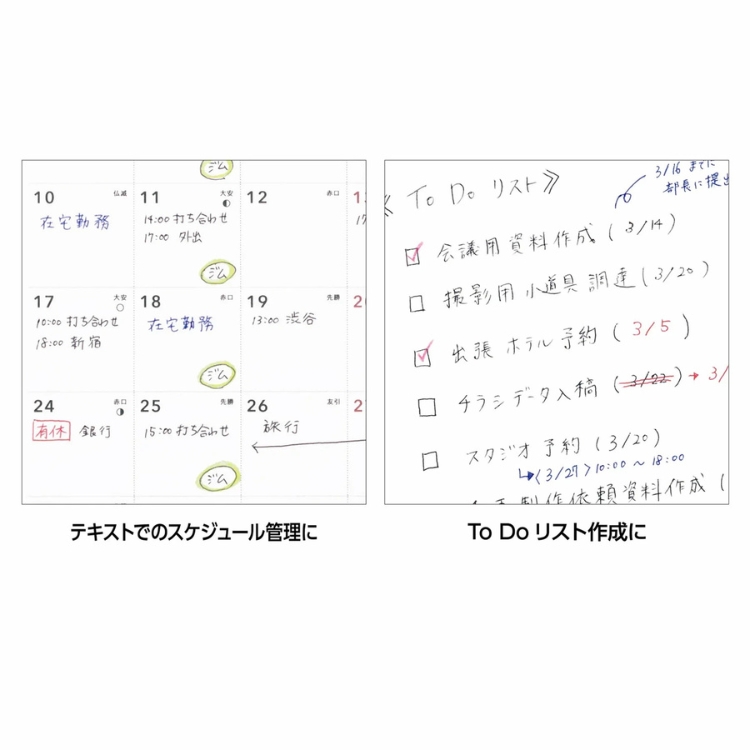 ジム
10 仏滅
在宅勤務
11 大安
14:00 打ち合わせ
17:00 外出
ジム
12 赤口
17 大安
10:00 打ち合わせ
18:00 新宿
18 赤口
在宅勤務
ジム
19 先勝
13:00 渋谷
24 赤口
有休 銀行
25 先勝
15:00 打ち合わせ
ジム
26 友引
旅行
テキストでのスケジュール管理に
3/16 までに
部長に提出
To Do リスト》
会議用資料作成 (3/14)
撮影用 小道具 調達 (3/20)
出張 ホテル 予約 (3/5)
チラシデータ入稿 (3/22) → 3/
スタジオ予約 (3/20)
↳〈3/27〉10:00 ~ 18:00
制作依頼資料作成 (
To Do リスト作成に